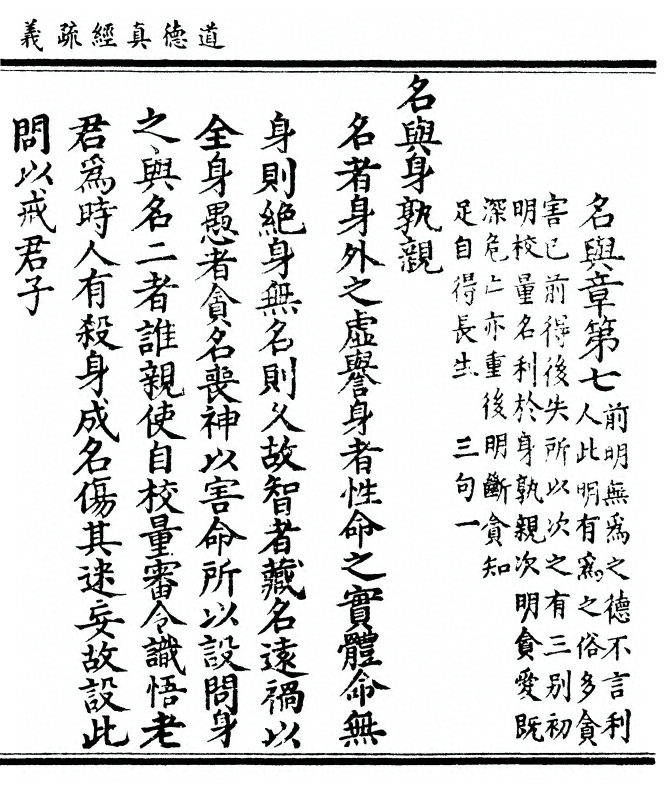 道德真經疏義
名與章第七
前明無爲之德不言利
人此明有爲之俗多貪
害已前得後失所以次之有三別初
明校量名利於身孰親次明貪愛既
深危亡亦重後明斷貪知
足自得長生 三句一
名與身孰親
名者身外之虛譽身者性命之實體命無
身則絕身無名則久故智者藏名遠禍以
全身愚者貪名喪神以害命所以設問身
之與名二者誰親使自校量審令識悟老
君爲時人有殺身成名傷其迷妄故設此
問以戒君子